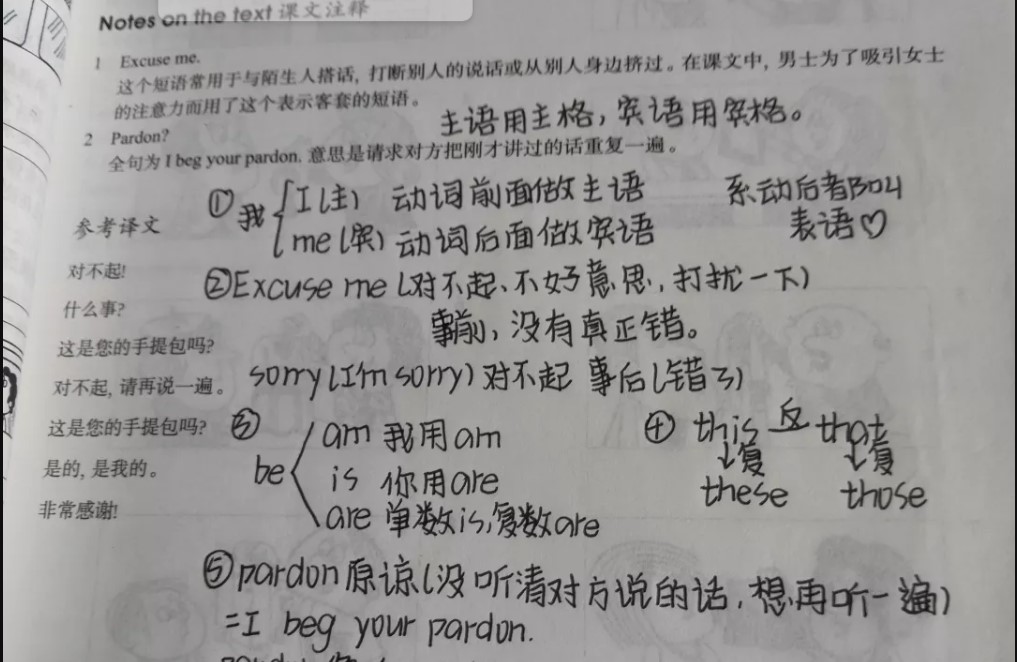 Notes on the text 课文注释
1 Excuse me.
这个短语常用于与陌生人搭话, 打断别人的说话或从别人身边挤过。在课文中, 男士为了吸引女士
的注意力而用了这个表示客套的短语。
主语用主格, 宾语用宾格。
2 Pardon?
全句为 I beg your pardon. 意思是请求对方把刚才讲过的话重复一遍。
①我 I(主) 动词前面做主语
me(宾) 动词后面做宾语
系动后者阝叫
表语♡
参考译文
对不起!
什么事?
这是您的手提包吗?
对不起, 请再说一遍。
这是您的手提包吗?
是的, 是我的。
非常感谢!
②Excuse me (对不起、不好意思, 打扰一下)
事前, 没有真正错。
sorry (I'm sorry) 对不起 事后(错了)
③ be am 我用am
is 你用are
are 单数is,复数are
④ this 反 that
↓复 ↓复
these those
⑤pardon原谅(没听清对方说的话, 想再听一遍)
=I beg your pardon.